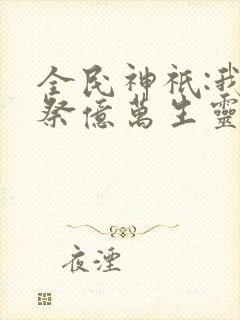 全民神祇:我
祭億萬生靈
夜湮